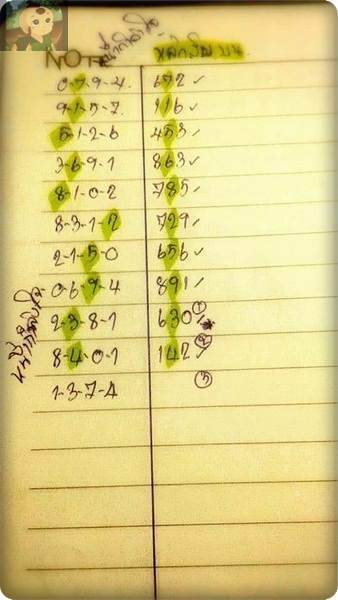 NOTE
หลักสิบ บน
0-7-9-4. 672 ✓
9-1-5-7. 116 ✓
5-1-2-6 453 ✓
3-6-9-1 863 ✓
8-1-0-2 785 ✓
8-3-1-2 729 ✓
2-1-5-0 656 ✓
0-6-9-4 891 ✓
2-3-8-1 630 ①
8-4-0-1 142 ②
1-3-7-4 ③